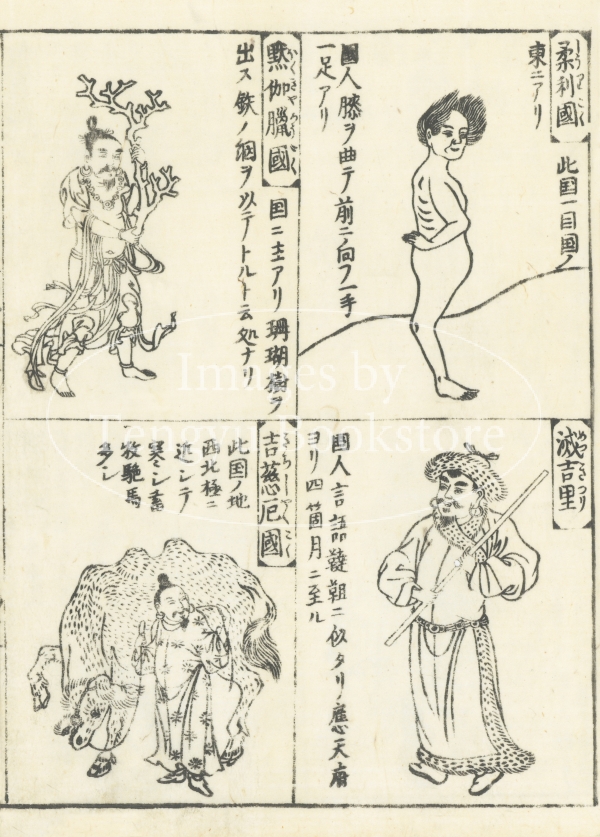 柔利國
此国一目国ノ
東ニアリ
國人膝ヲ曲テ前ニ向フ一手
一足アリ
黙伽臘國
国ニ主アリ珊瑚樹ヲ
出ス鉄ノ網ヲ以テトルト云処ナリ
滅吉里
國人言語韃靼ニ似タリ應天府
ヨリ四箇月ニ至ル
吉慈厄國
此国ノ地
西北極ニ
近シテ
寒シ畜
牧駝馬
多シ
Images by
Tengyu Bookstore